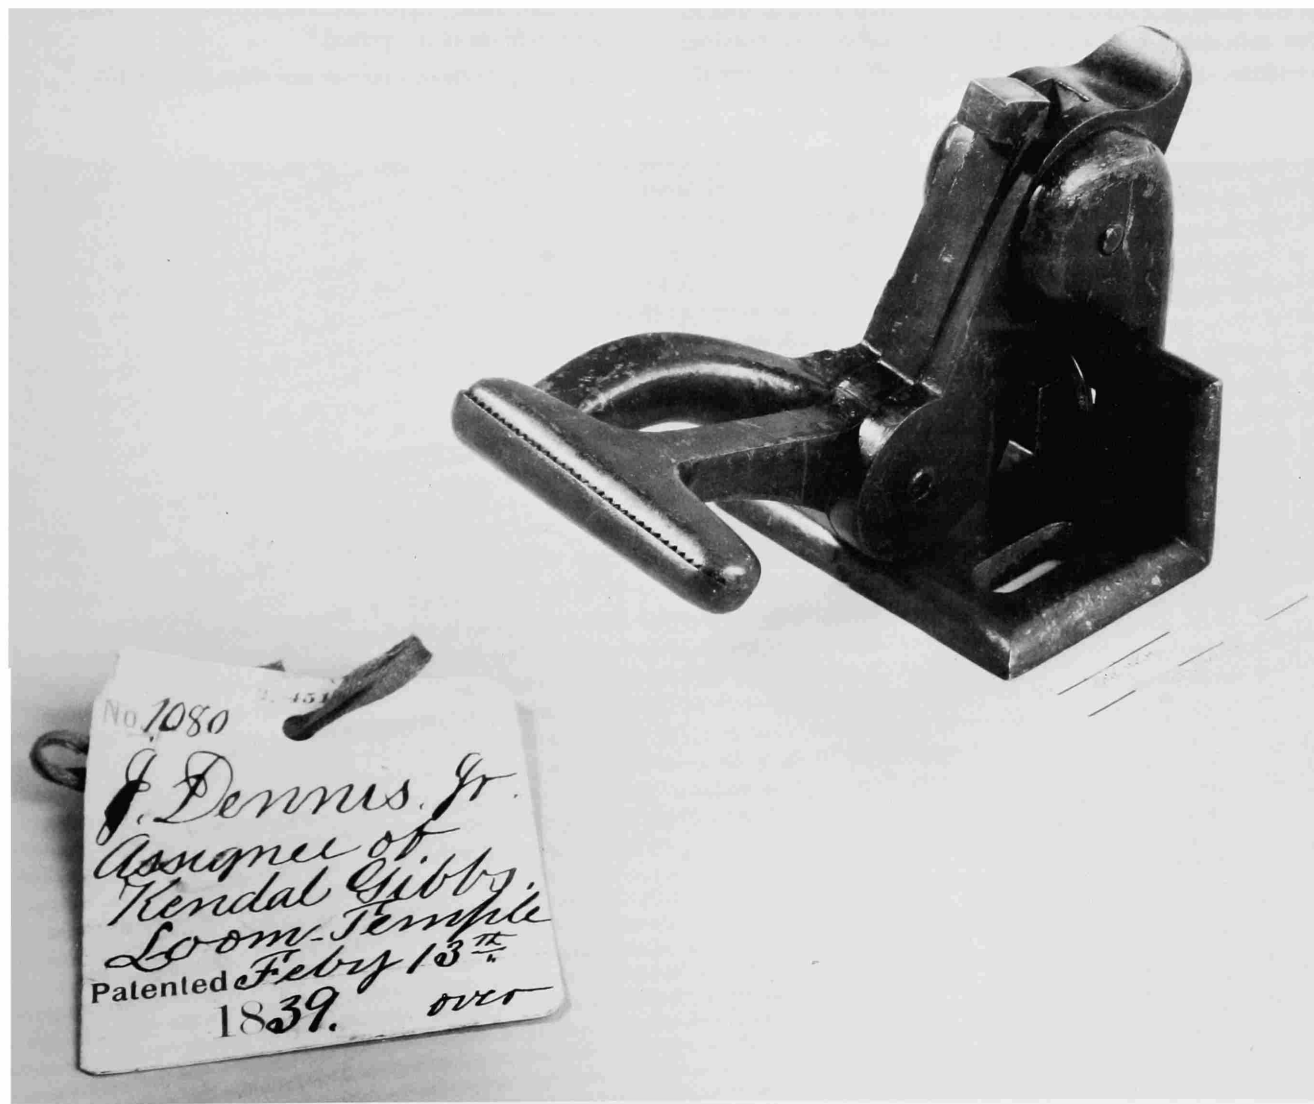 No. 1080
451
J. Dennis. Jr.
Assignee of
Kendal Gibbs.
Loom-Temple
Patented Feby 13th
1839. over